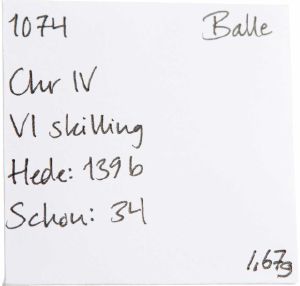 1074 Balle
Chr IV
VI skilling
Hede: 139b
Schou: 34
1,67g